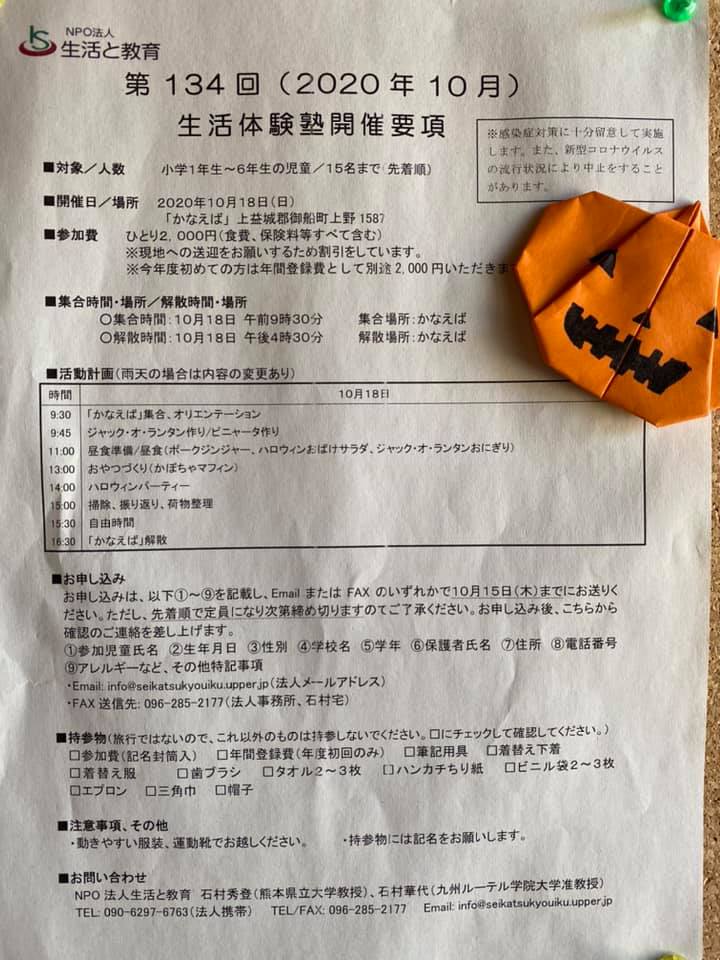 NPO法人
生活と教育
第134回（2020年10月）
生活体験塾開催要項
※感染症対策に十分留意して実施
します。また、新型コロナウイルス
の流行状況により中止をすること
があります。
■対象／人数 小学1年生～6年生の児童／15名まで（先着順）
■開催日／場所 2020年10月18日（日）
「かなえば」 上益城郡御船町上野1587
■参加費 ひとり2,000円（食費、保険料等すべて含む）
※現地への送迎をお願いするため割引をしています。
※今年度初めての方は年間登録費として別途2,000円いただきま
■集合時間・場所／解散時間・場所
○集合時間：10月18日 午前9時30分 集合場所：かなえば
○解散時間：10月18日 午後4時30分 解散場所：かなえば
■活動計画（雨天の場合は内容の変更あり）
時間 10月18日
9:30 「かなえば」集合、オリエンテーション
9:45 ジャック・オ・ランタン作り/ピニャータ作り
11:00 昼食準備/昼食（ポークジンジャー、ハロウィンおばけサラダ、ジャック・オ・ランタンおにぎり）
13:00 おやつづくり（かぼちゃマフィン）
14:00 ハロウィンパーティー
15:00 掃除、振り返り、荷物整理
15:30 自由時間
16:30 「かなえば」解散
■お申し込み
お申し込みは、以下①～⑨を記載し、Email または FAX のいずれかで10月15日（木）までにお送りく
ださい。ただし、先着順で定員になり次第締め切りますのでご了承ください。お申し込み後、こちらから
確認のご連絡を差し上げます。
①参加児童氏名 ②生年月日 ③性別 ④学校名 ⑤学年 ⑥保護者氏名 ⑦住所 ⑧電話番号
⑨アレルギーなど、その他特記事項
・Email: info@seikatsukyouiku.upper.jp（法人メールアドレス）
・FAX 送信先: 096-285-2177（法人事務所、石村宅）
■持参物（旅行ではないので、これ以外のものは持参しないでください。□にチェックして確認してください。）
□参加費（記名封筒入） □年間登録費（年度初回のみ） □筆記用具 □着替え下着
□着替え服 □歯ブラシ □タオル2～3枚 □ハンカチちり紙 □ビニル袋2～3枚
□エプロン □三角巾 □帽子
■注意事項、その他
・動きやすい服装、運動靴でお越しください。 ・持参物には記名をお願いします。
■お問い合わせ
NPO法人生活と教育 石村秀登（熊本県立大学教授）、石村華代（九州ルーテル学院大学准教授）
TEL: 090-6297-6763（法人携帯） TEL/FAX: 096-285-2177 Email: info@seikatsukyouiku.upper.jp